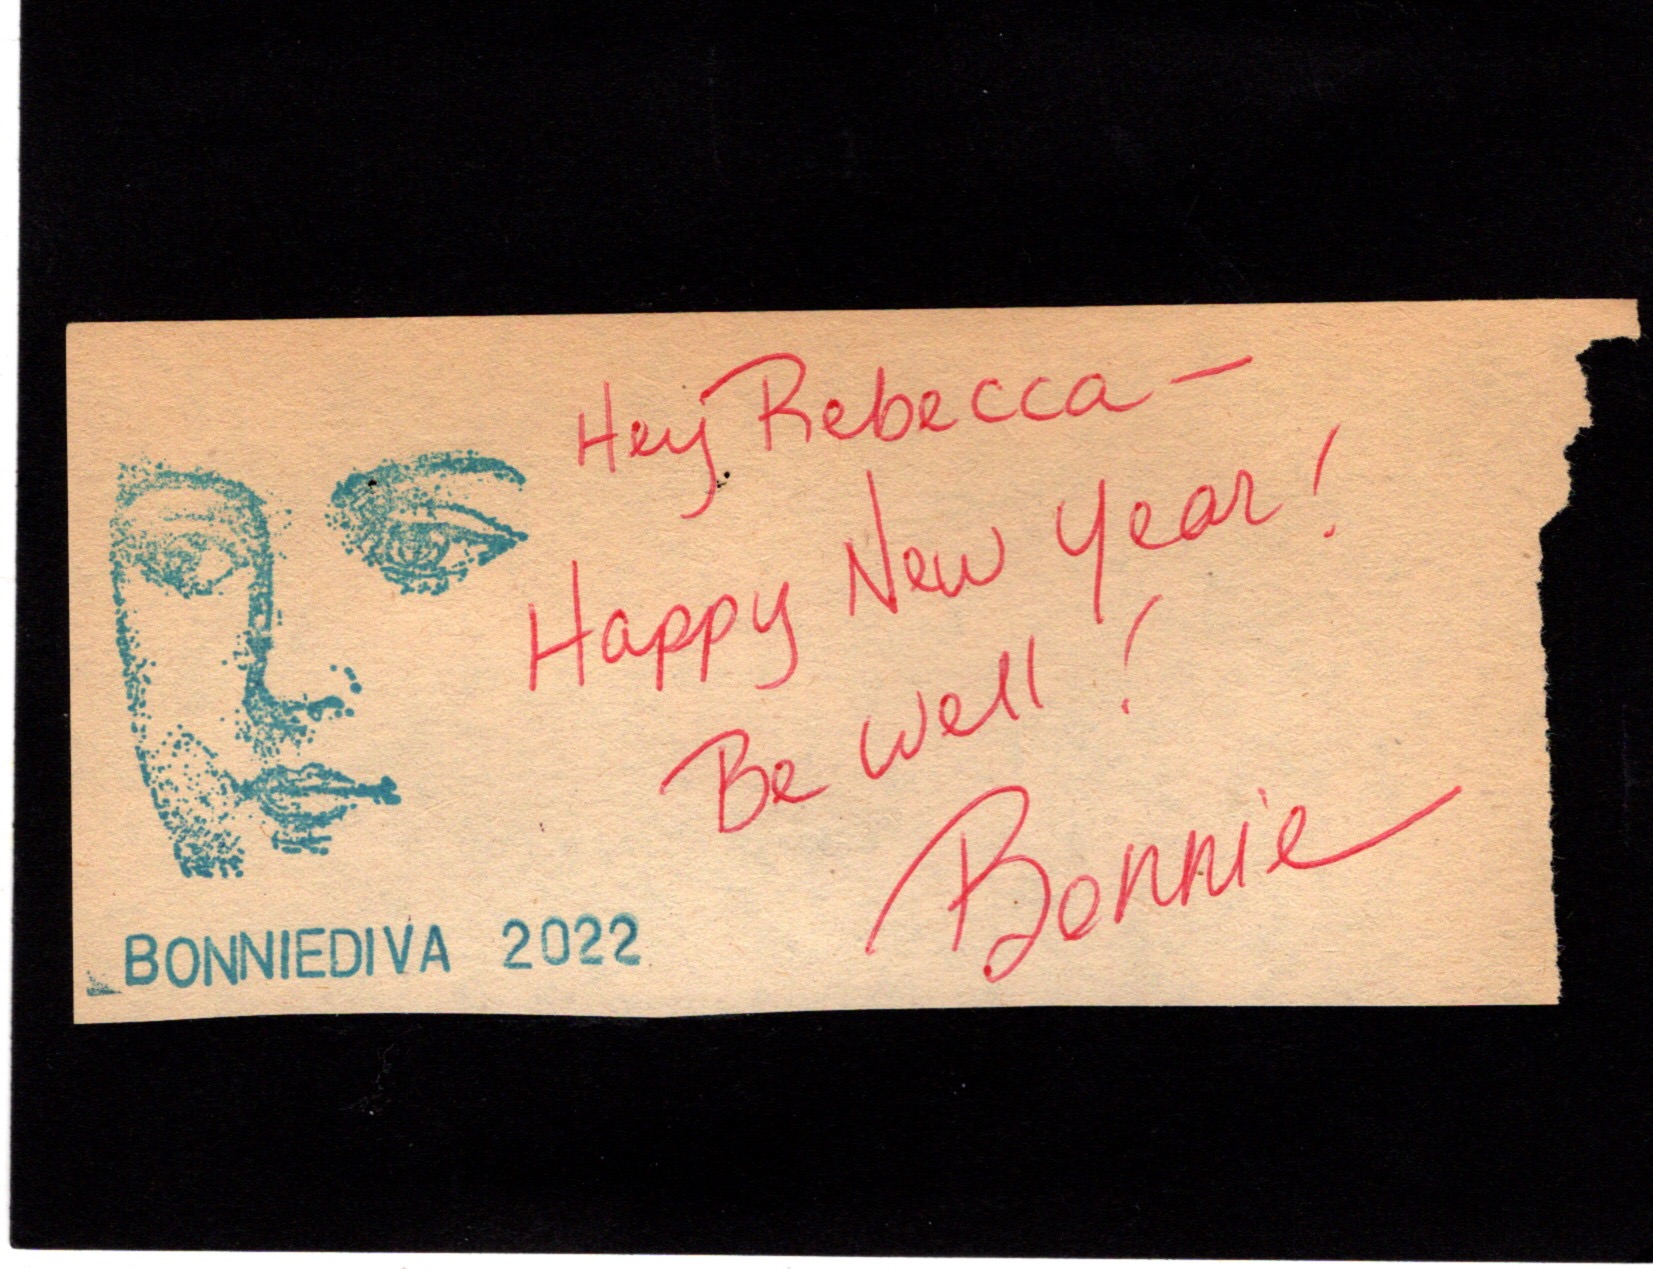 Hey Rebecca —
Happy New Year!
Be well!
Bonnie
BONNIEDIVA 2022